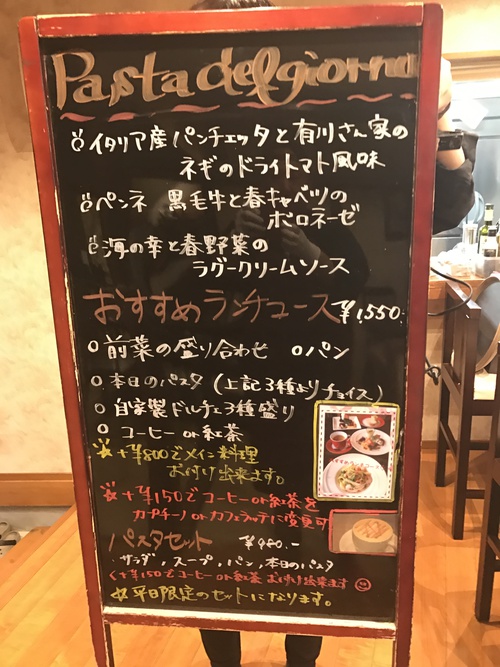 Pasta del giorno
イタリア産パンチェッタと有川さん家の
ネギのドライトマト風味
ペンネ 黒毛牛と春キャベツの
ボロネーゼ
海の幸と春野菜の
ラグークリームソース
おすすめランチコース ¥1,550.
○前菜の盛り合わせ ○パン
○本日のパスタ (上記3種よりチョイス)
○自家製ドルチェ3種盛り
○コーヒー or 紅茶
☆+¥800でメイン料理
お付け出来ます。
☆+¥150でコーヒー or 紅茶を
カプチーノ or カフェラッテに変更可
パスタセット ¥980.-
サラダ、スープ、パン、本日のパスタ
(+¥150でコーヒー or 紅茶 お付け出来ます
☆平日限定のセットになります。